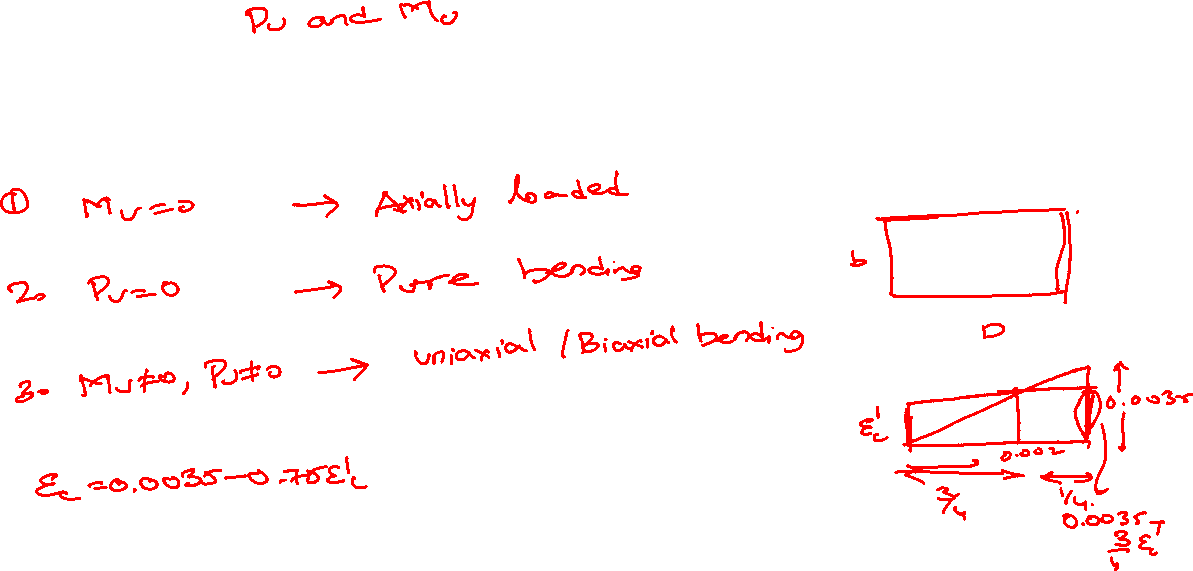 Pu and Mu
① Mu=0 → Axially loaded
2. Pu=0 → Pure bending
3. Mu≠0, Pu≠0 → uniaxial / Biaxial bending
εc = 0.0035-0.75ε'c
b
D
ε'c
0.0035
0.002
3/4
1/4
0.0035-